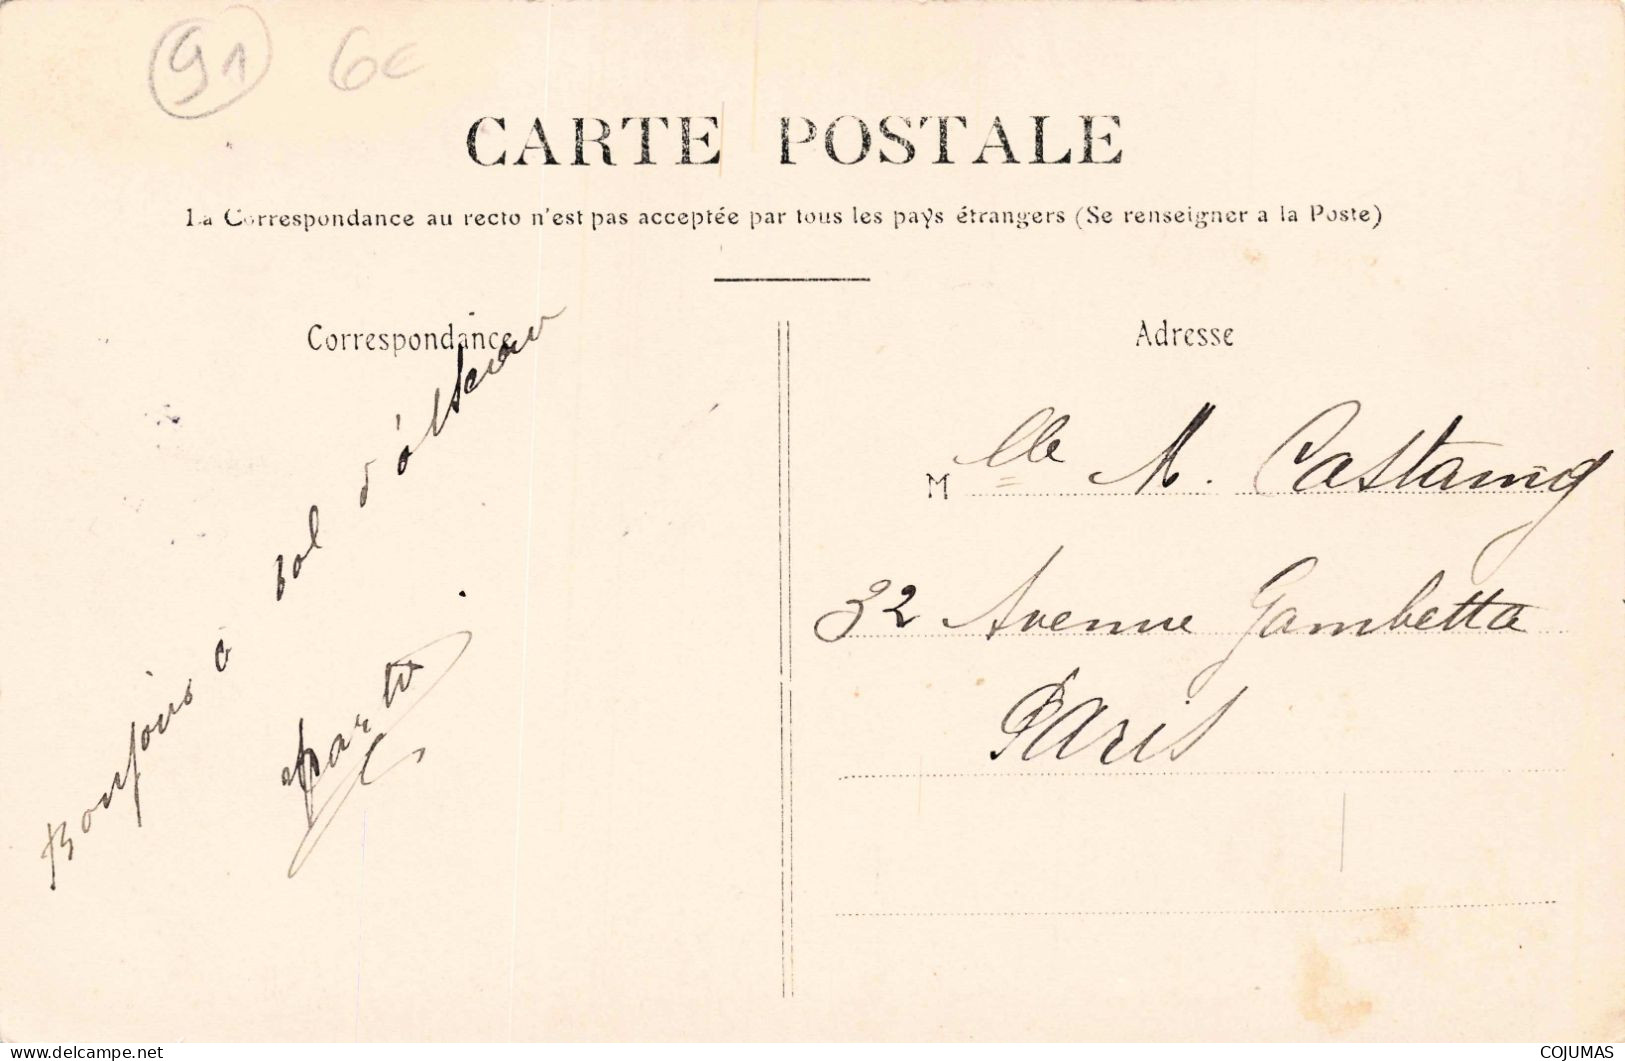 91 6€
CARTE POSTALE
La Correspondance au recto n'est pas acceptée par tous les pays étrangers (Se renseigner a la Poste)
Correspondance
Adresse
Bonjour à vol d'oiseau
Mlle M. Castaing
32 Avenue Gambetta
Paris
delcampe.net
COJUMAS